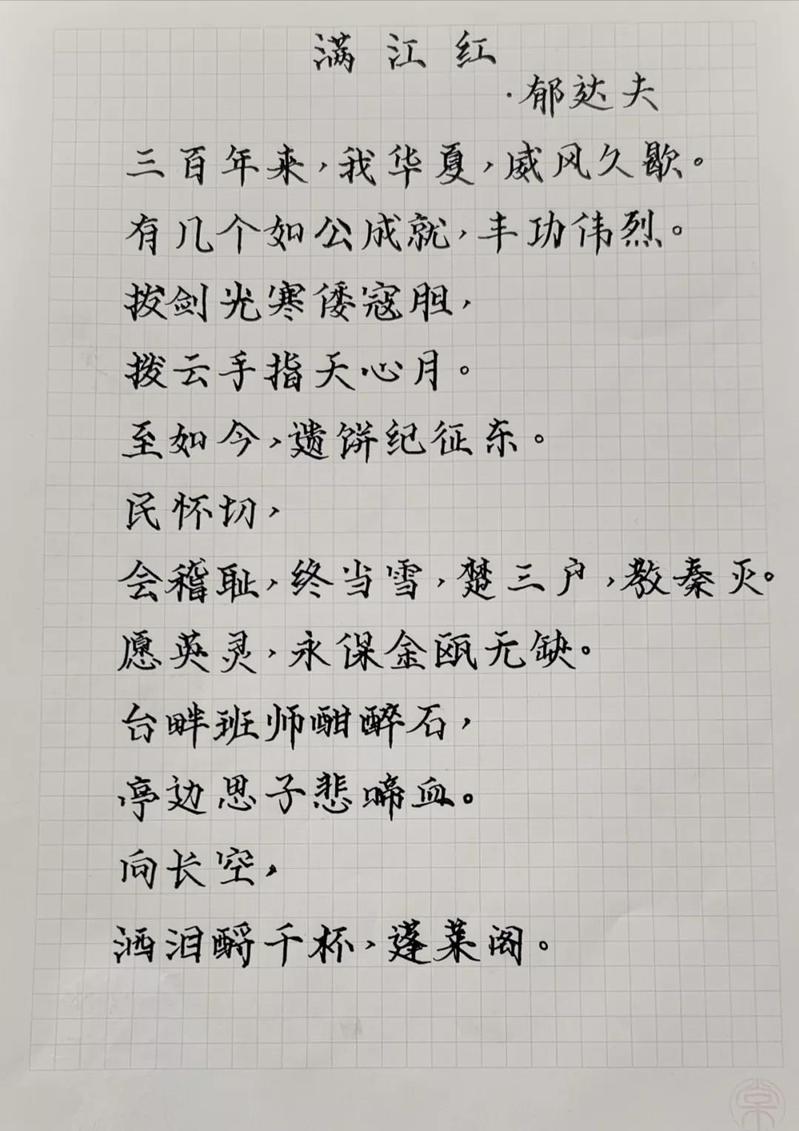 满江红
·郁达夫
三百年来，我华夏，威风久歇。
有几个如公成就，丰功伟烈。
拔剑光寒倭寇胆，
拨云手指天心月。
至如今，遗饼纪征东。
民怀切，
会稽耻，终当雪，楚三户，教秦灭。
愿英灵，永保金瓯无缺。
台畔班师酣醉石，
亭边思子悲啼血。
向长空，
洒泪酹千杯，蓬莱阁。